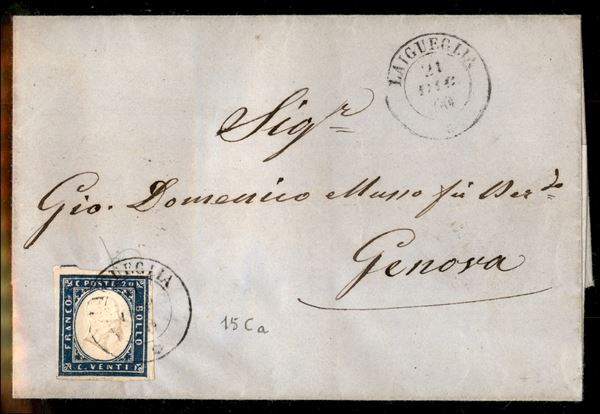 LAIGUEGLIA
21
DIC
60
Sig.r
Gio. Domenico Musso fù Ber.do
Genova
UEGLIA
C. POSTE 20
FRANCO
BOLLO
C. VENTI
15Ca